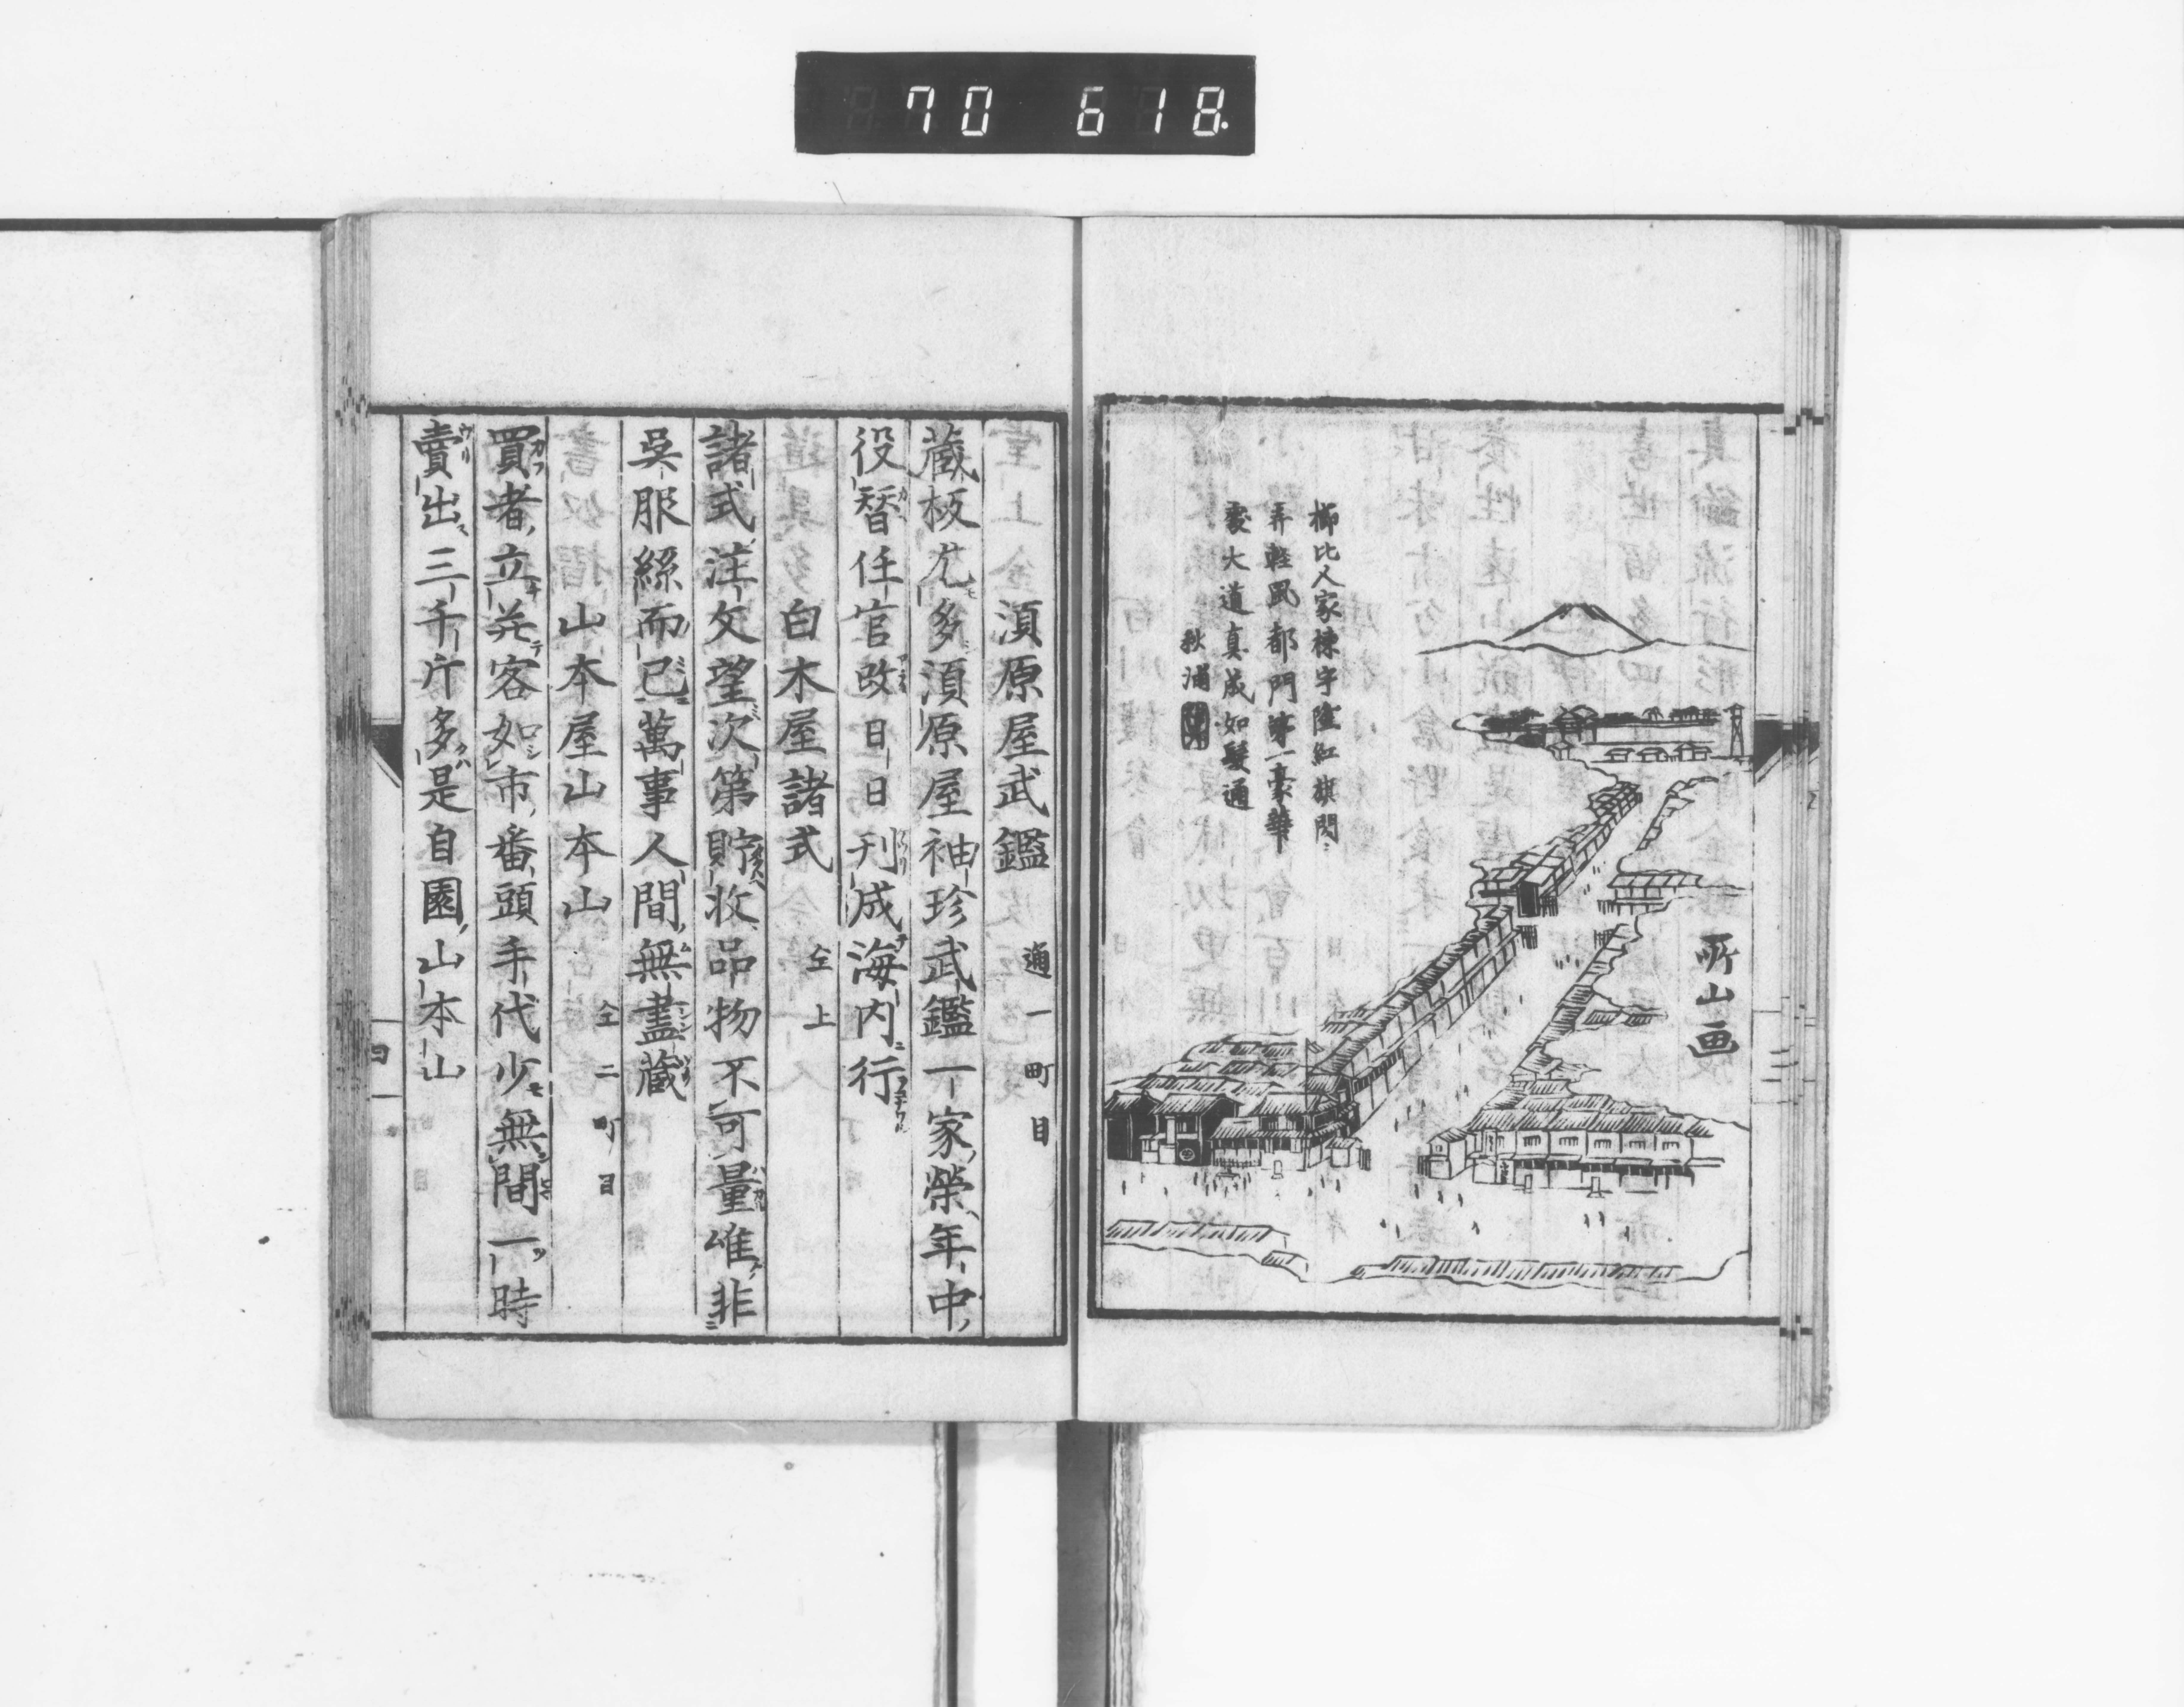 70 618.
櫛比人家棟宇隆紅旗閃〻
弄軽風都門第一豪華
處大道真成如髮通
秋浦
所山画
湏原屋武鑑 通一町目
蔵板尤多湏原屋袖珍武鑑一家榮年中
役替任官改日日刊成海内行
白木屋諸式 仝上
諸式注文望次第貯收品物不可量唯非
呉服絲而已萬事人間無盡蔵
山本屋山本山 仝二町目
買者立并客如市番頭手代少無間一時
賣出三千斤多是自園山本山
四